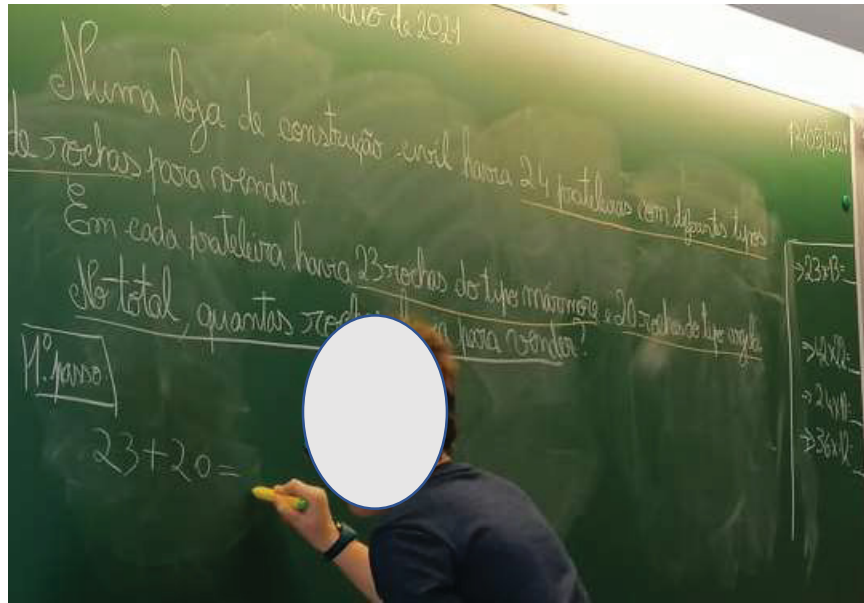 de 2021
Numa loja de construção civil havia 24 prateleiras com diferentes tipos
de rochas para vender.
Em cada prateleira havia 23 rochas do tipo mármore e 20 rochas do tipo argila
No total, quantas para vender?
1.º passo
23+20=